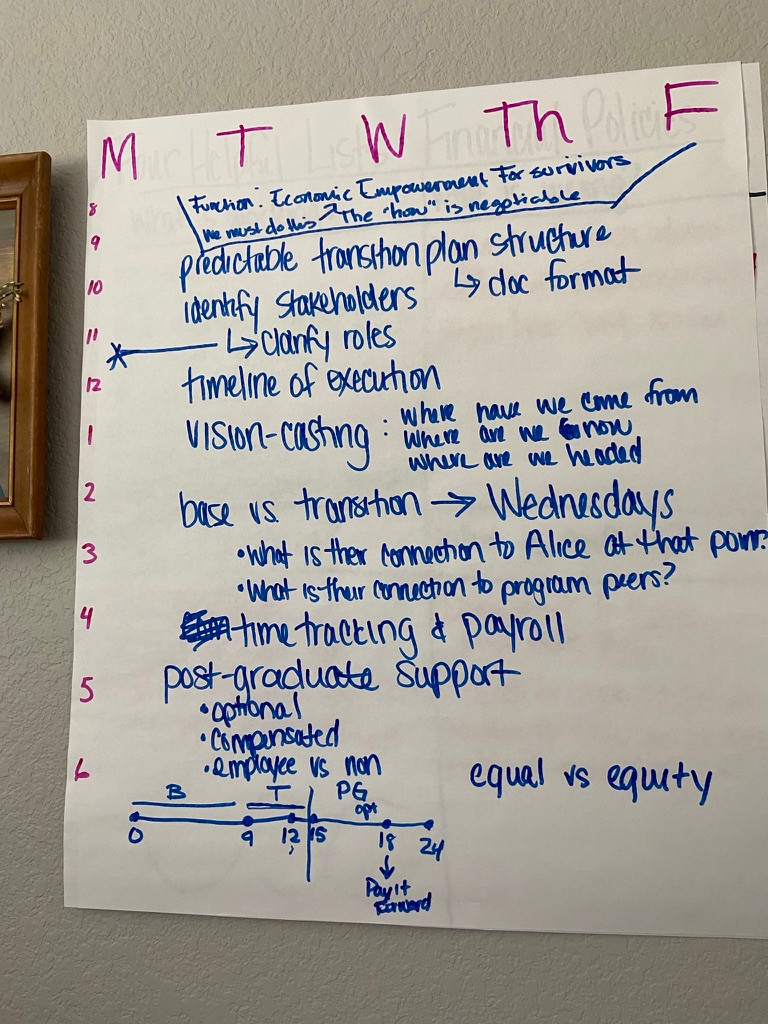 M T W Th F
Function: Economic Empowerment For survivors
8
we must do this The "how" is negotiable
9 predictable transition plan structure
10 identify stakeholders ↳ doc format
11 ↳ Clarify roles
12 timeline of execution
1 vision-casting : where have we come from
where are we now
where are we headed
2 base vs. transition → Wednesdays
3 • What is their connection to Alice at that point?
• What is their connection to program peers?
4 time tracking & payroll
5 post-graduate support
• optional
• compensated
6 • employee vs non equal vs equity
B T PG
opt
0 9 12 15 18 24
Pay it
Forward